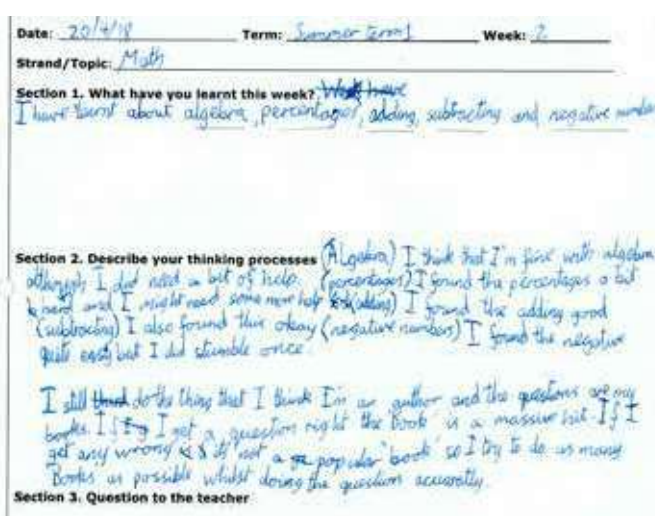 Date: 20/4/18 Term: Summer term 1 Week: 2
Strand/Topic: Math
Section 1. What have you learnt this week? What have
I have learnt about algebra, percentages, adding, subtracting and negative number
Section 2. Describe your thinking processes (Algebra) I think that I'm fine with algebra
although I did need a bit of help. (percentages) I found the percentages a bit
hard and I might need some more help (adding) I found the adding good
(subtracting) I also found this okay (negative numbers) I found the negative
quite easy but I did stumble once.
I still do the thing that I think I'm an author and the questions are my
books. If I get a question right the 'book' is a massive hit If I
get any wrong it's not a popular 'book' so I try to do as many
Books as possible whilst doing the question accuratly.
Section 3. Question to the teacher